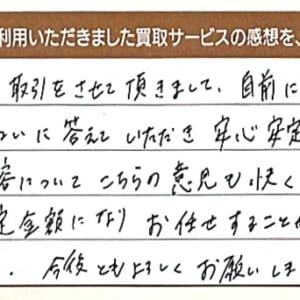 利用いただきました買取サービスの感想を、
取引をさせて頂きまして、自前に
いに答えていただき安心安定
客についてこちらの意見も快く
定金額になりお任せすることが
．今後ともよろしくお願いしま